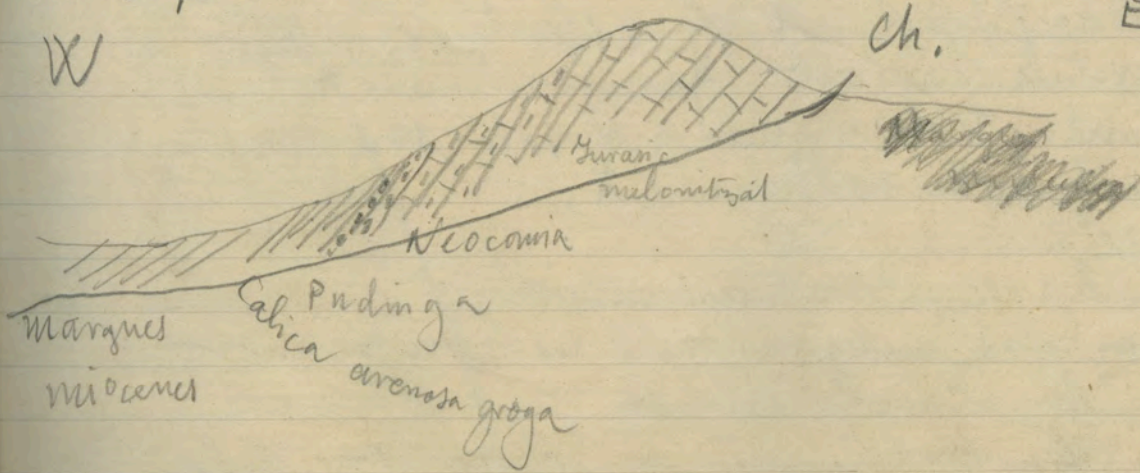 W
Ch.
E
Jurasic
melonitzat
Neocomia
Pudinga
Calica arenosa groga
Margues
miocenes